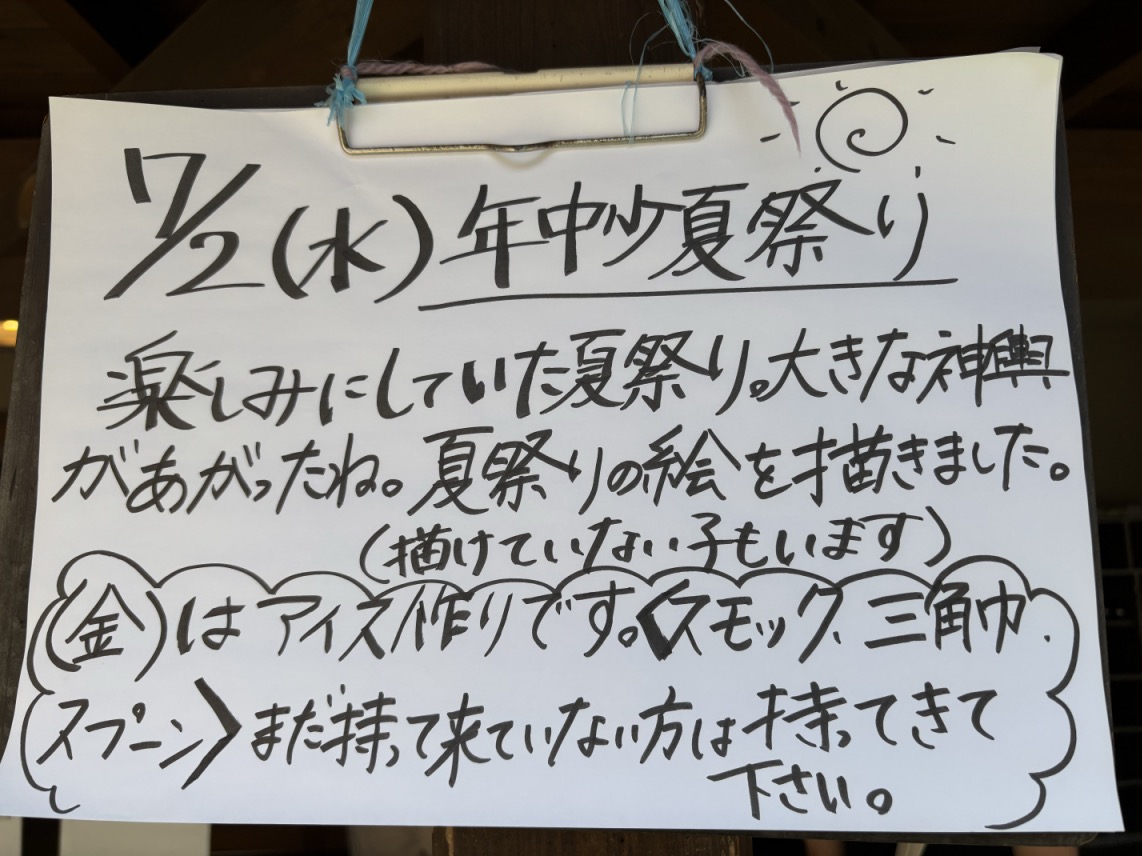 7/2(水)年中少夏祭り
楽しみにしていた夏祭り。大きな神輿
があがったね。夏祭りの絵を描きました。
(描けていない子もいます)
(金)はアイス作りです。〈スモック、三角巾、
スプーン〉まだ持って来ていない方は持ってきて
下さい。